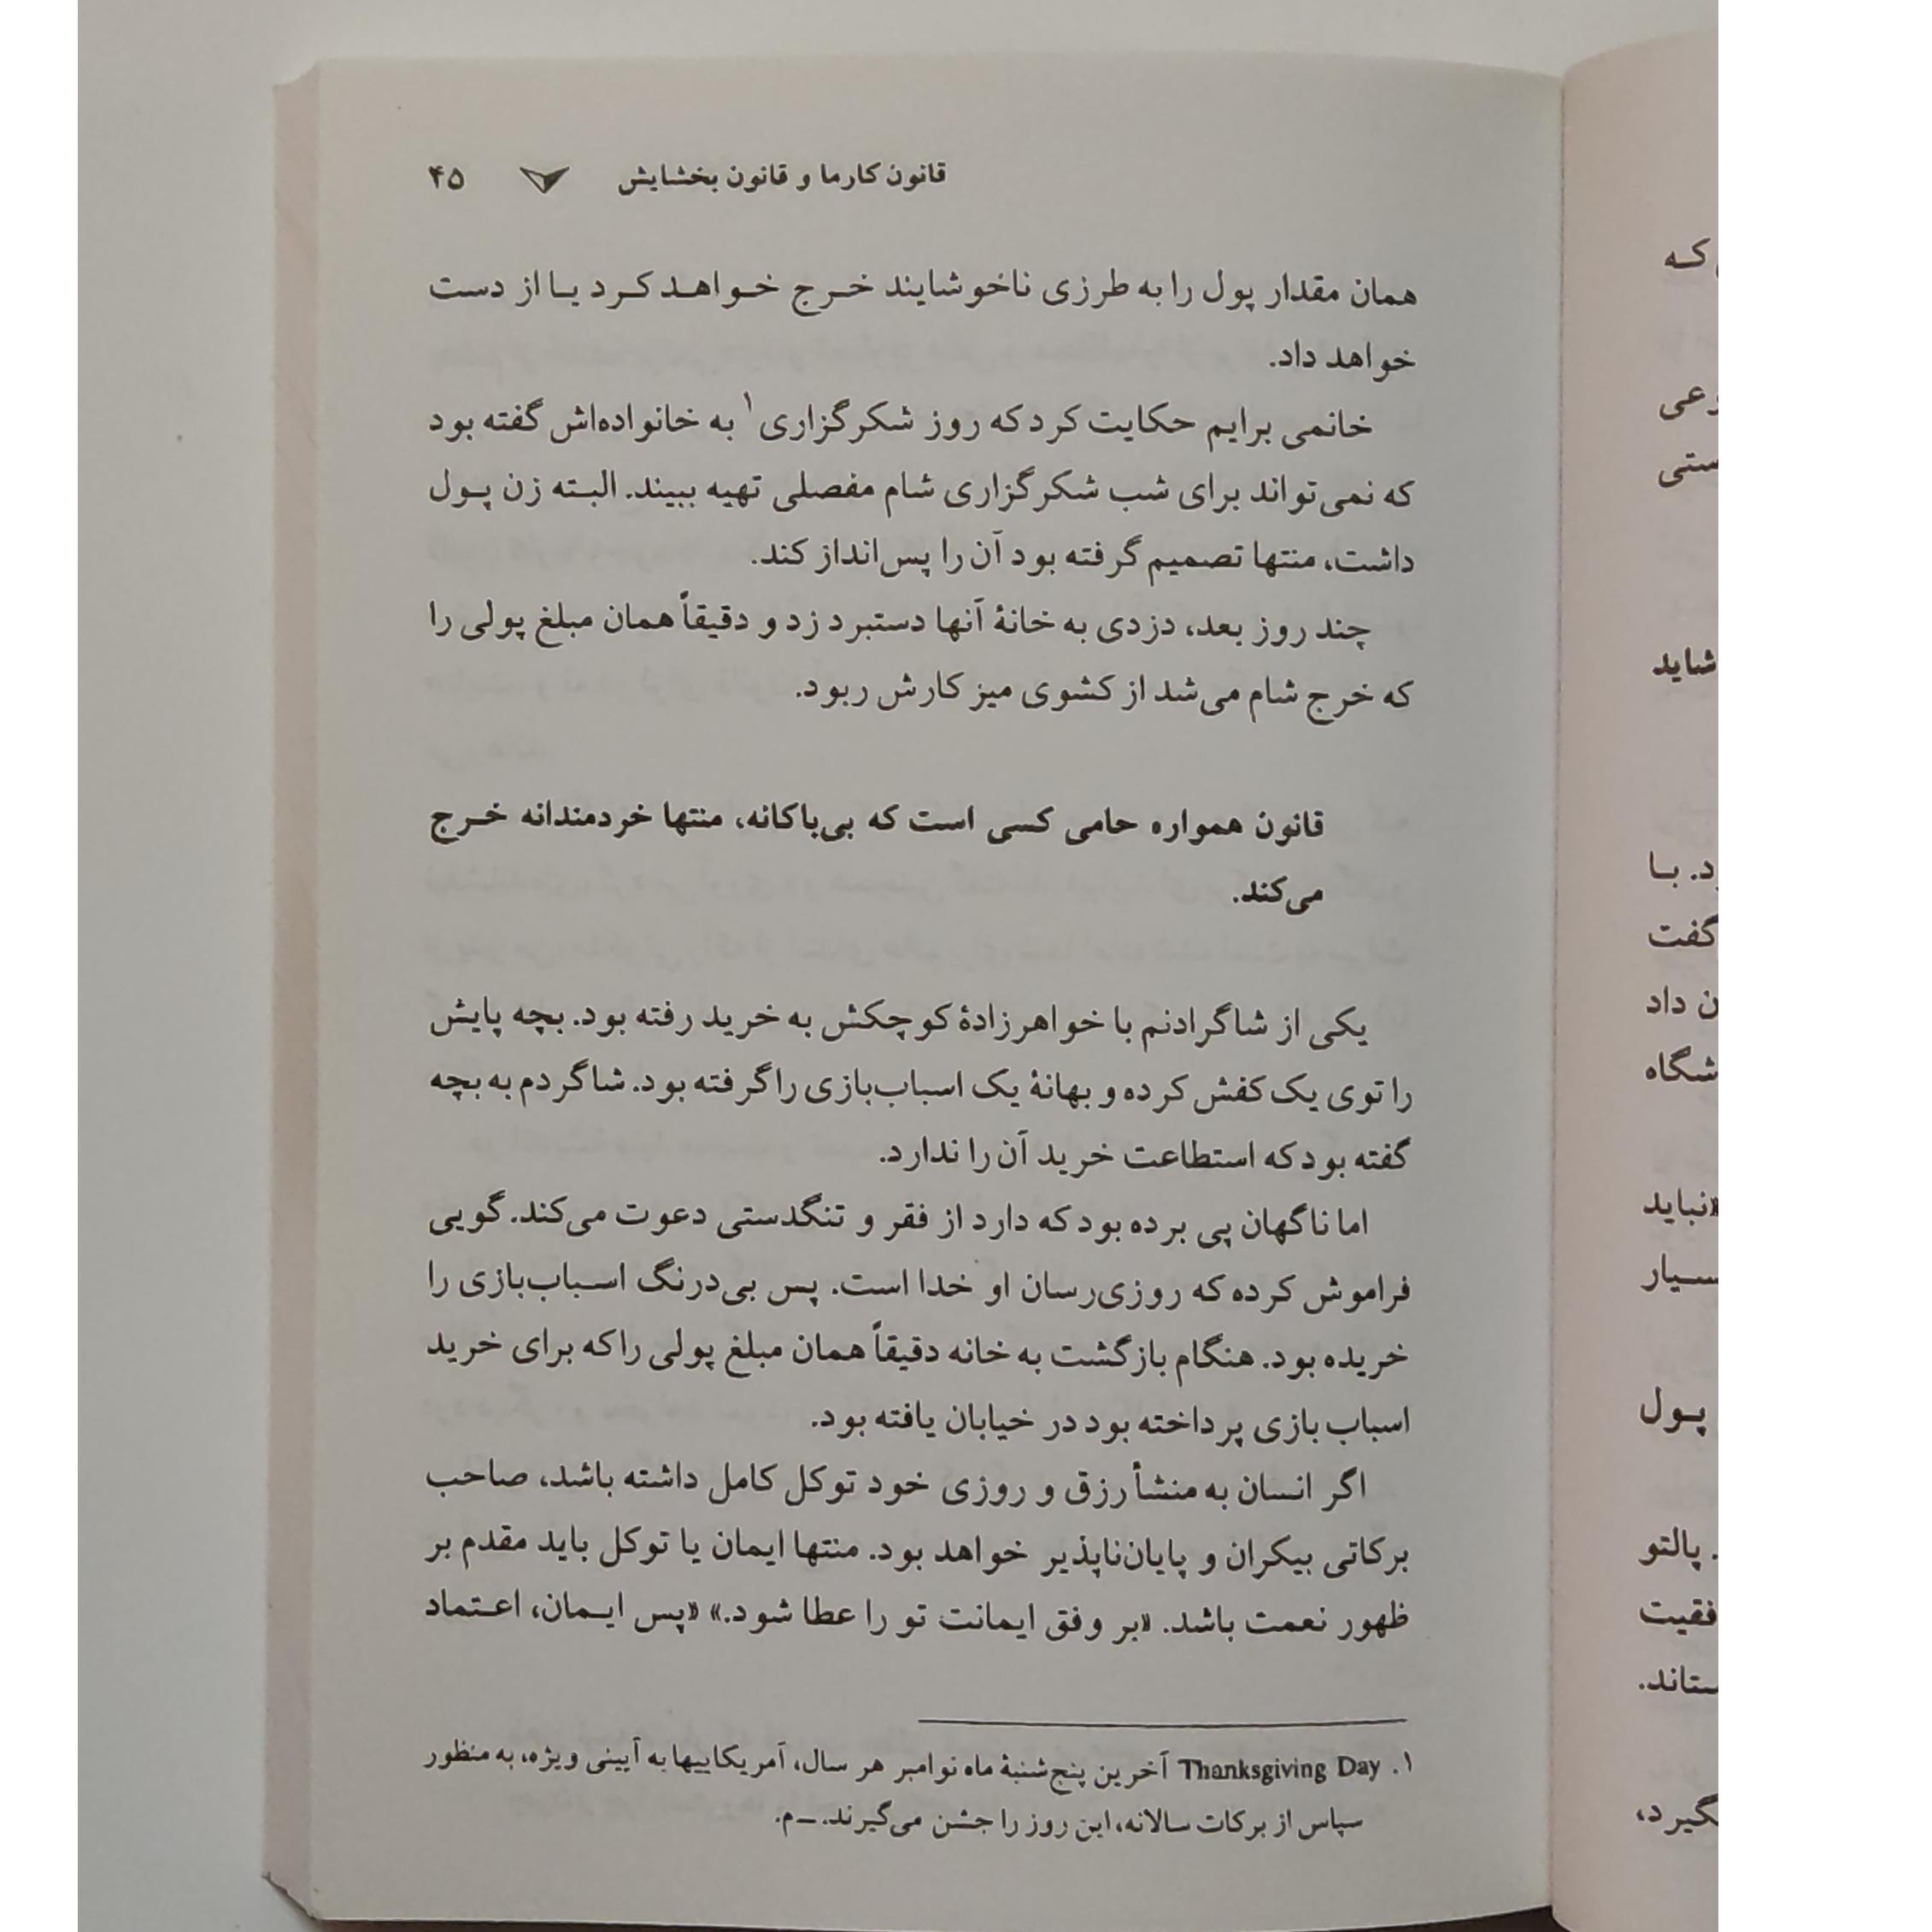 قانون کارما و قانون بخشایش ۴۵
همان مقدار پول را به طرزی ناخوشایند خرج خواهد کرد یا از دست
خواهد داد.
خانمی برایم حکایت کرد که روز شکرگزاری۱ به خانواده‌اش گفته بود
که نمی‌تواند برای شب شکرگزاری شام مفصلی تهیه ببیند. البته زن پول
داشت، منتها تصمیم گرفته بود آن را پس‌انداز کند.
چند روز بعد، دزدی به خانهٔ آنها دستبرد زد و دقیقاً همان مبلغ پولی را
که خرج شام می‌شد از کشوی میز کارش ربود.
قانون همواره حامی کسی است که بی‌باکانه، منتها خردمندانه خرج
می‌کند.
یکی از شاگرادنم با خواهرزادهٔ کوچکش به خرید رفته بود. بچه پایش
را توی یک کفش کرده و بهانهٔ یک اسباب‌بازی را گرفته بود. شاگردم به بچه
گفته بود که استطاعت خرید آن را ندارد.
اما ناگهان پی برده بود که دارد از فقر و تنگدستی دعوت می‌کند. گویی
فراموش کرده که روزی‌رسان او خدا است. پس بی‌درنگ اسباب‌بازی را
خریده بود. هنگام بازگشت به خانه دقیقاً همان مبلغ پولی را که برای خرید
اسباب بازی پرداخته بود در خیابان یافته بود.
اگر انسان به منشأ رزق و روزی خود توکل کامل داشته باشد، صاحب
برکاتی بیکران و پایان‌ناپذیر خواهد بود. منتها ایمان یا توکل باید مقدم بر
ظهور نعمت باشد. «بر وفق ایمانت تو را عطا شود.» «پس ایمان، اعتماد
۱. Thanksgiving Day آخرین پنج‌شنبهٔ ماه نوامبر هر سال، آمریکاییها به آیینی ویژه، به منظور
سپاس از برکات سالانه، این روز را جشن می‌گیرند. ــ م.
که
ستی
شاید
د. با
گفت
ن داد
شگاه
«نباید
سیار
پول
. پالتو
فقیت
ستاند.
گیرد،